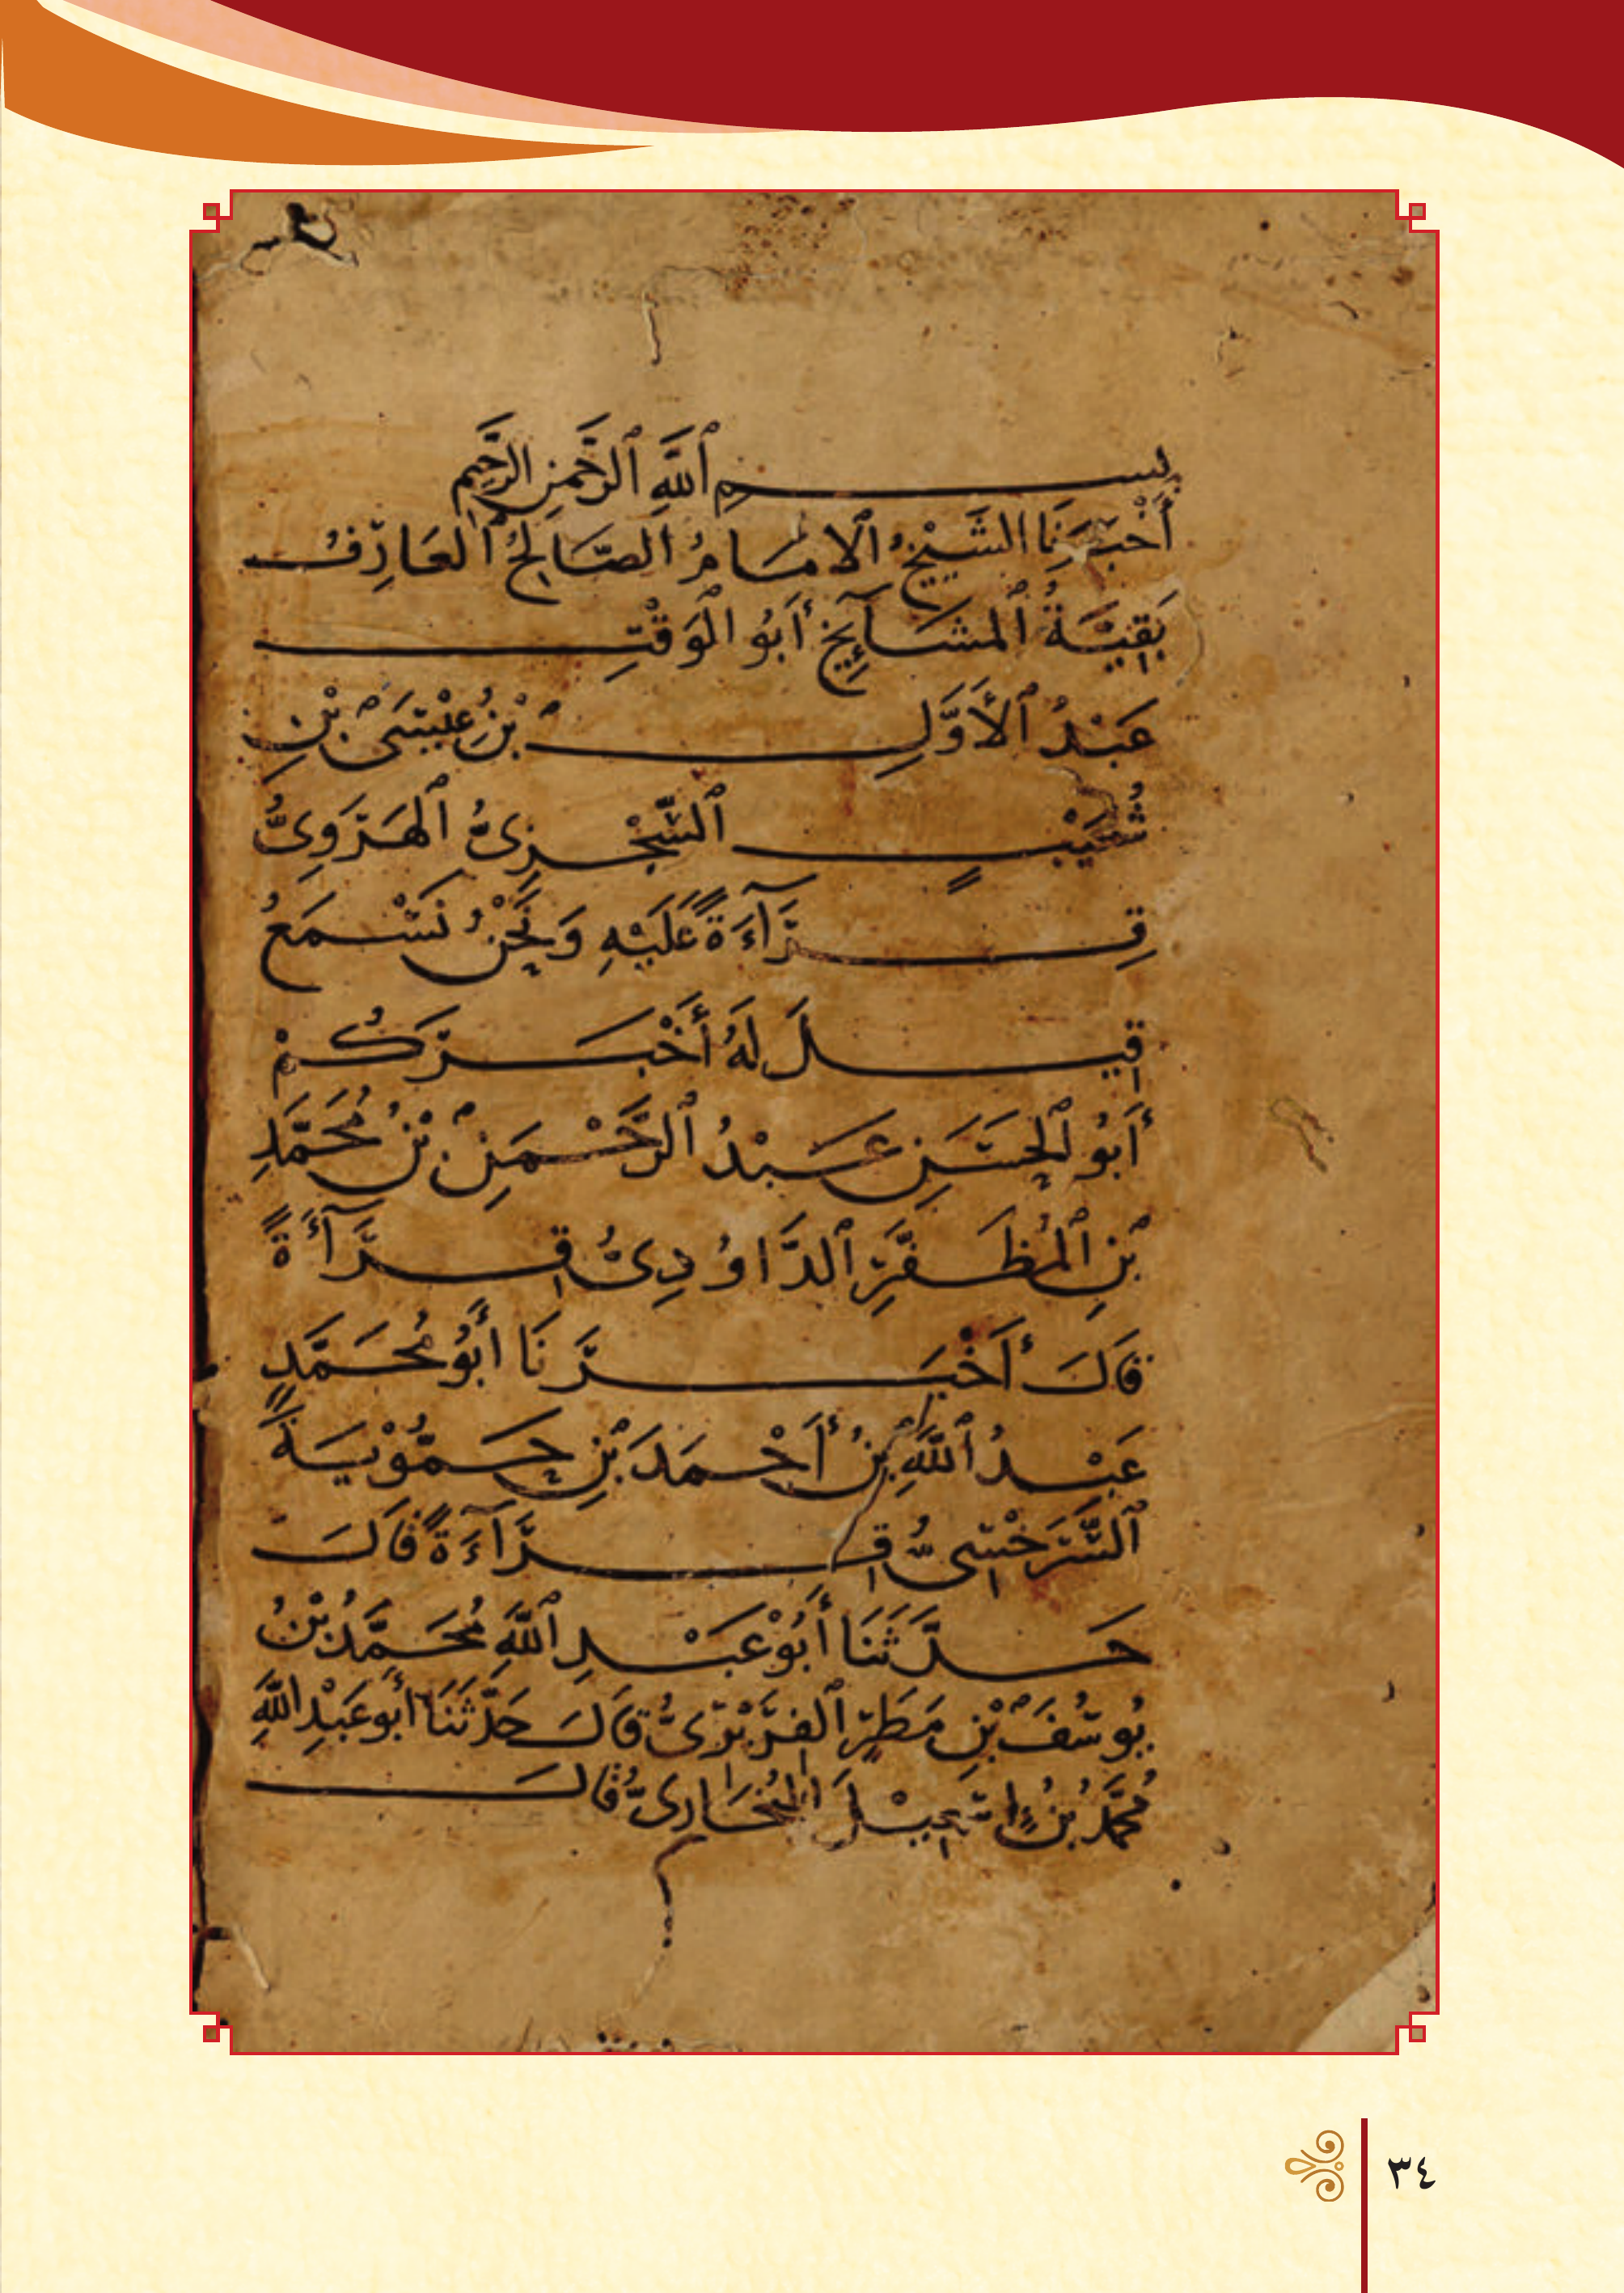 بِسْمِ ٱللَّهِ ٱلرَّحْمٰنِ الرَّحِيمِ
أَخْبَرَنَا الشَّيْخُ ٱلْإِمَامُ الصَّالِحُ ٱلْعَارِفُ
بَقِيَّةُ ٱلْمَشَآيِخِ أَبُو الْوَقْتِ
عَبْدُ ٱلْأَوَّلِ بْنُ عِيْسَى بْنِ
شُعَيْبٍ ٱلسِّجْزِيُّ ٱلْهَرَوِيُّ
قِرَآءَةً عَلَيْهِ وَنَحْنُ نَسْمَعُ
قِيلَ لَهُ أَخْبَرَكُمْ
أَبُو ٱلْحَسَنِ عَبْدُ ٱلرَّحْمَنِ بْنُ مُحَمَّدِ
بْنِ ٱلْمُظَفَّرِ ٱلدَّاوُدِيُّ قِرَآءَةً
قَالَ أَخْبَرَنَا أَبُو مُحَمَّدٍ
عَبْدُ ٱللَّهِ بْنُ أَحْمَدَ بْنِ حَمُّوْيَةَ
ٱلسَّرَخْسِيُّ قِرَآءَةً قَالَ
حَدَّثَنَا أَبُوْ عَبْدِ ٱللَّهِ مُحَمَّدُ بْنُ
يُوسُفَ بْنِ مَطَرٍ ٱلْفَرَبْرِيُّ قَالَ حَدَّثَنَا أَبُو عَبْدِ اللَّهِ
مُحَمَّدُ بْنُ إِسْمَعِيْلَ الْبُخَارِيُّ قَالَ
٣٤